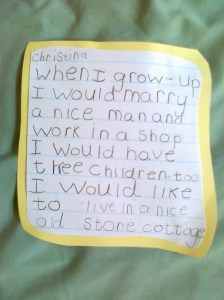 christina
when I grow-up
I would marry
a nice man and
work in a shop
I would have
three children too
I would like
to live in a nice
old stone cottage